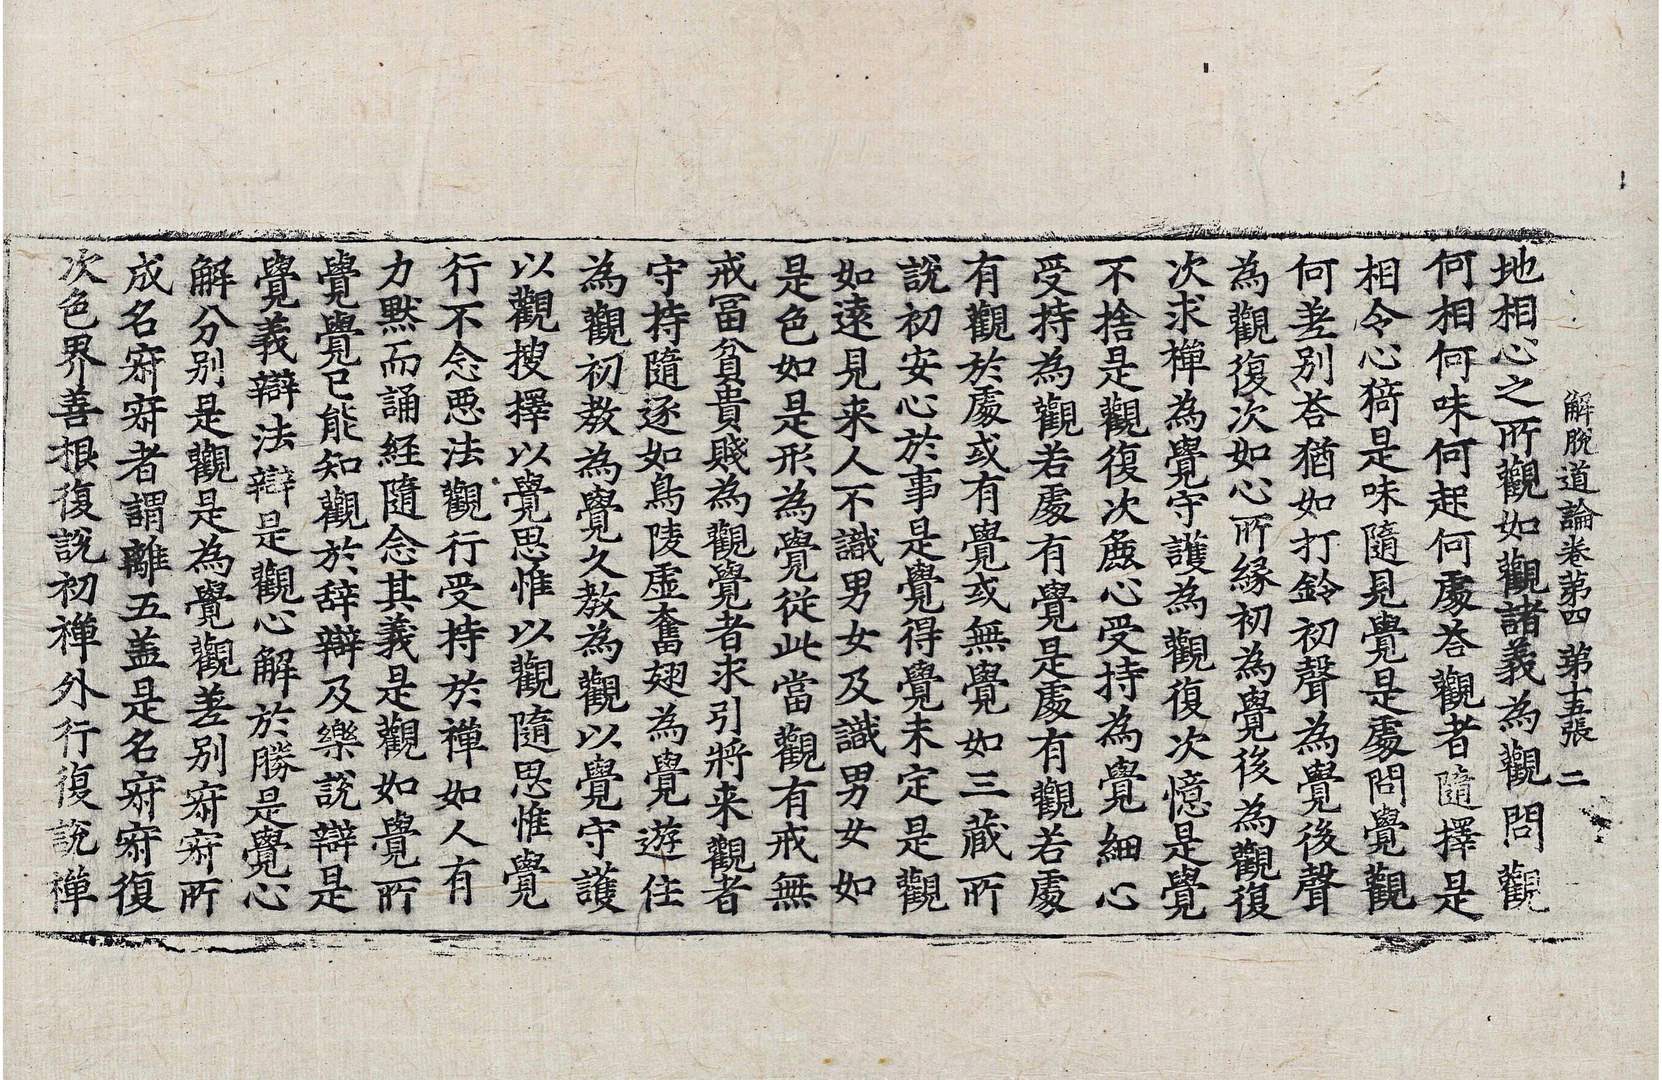 解脫道論卷第四 第十五張 二
地相心之所觀如觀諸義為觀問觀
何相何味何起何處荅觀者隨擇是
相令心猗是味隨見覺是處問覺觀
何差别荅猶如打鈴初聲為覺後聲
為觀復次如心所緣初為覺後為觀復
次求禪為覺守護為觀復次憶是覺
不捨是觀復次麁心受持為覺細心
受持為觀若處有覺是處有觀若處
有觀於處或有覺或無覺如三藏所
說初安心於事是覺得覺未定是觀
如遠見来人不識男女及識男女如
是色如是形為覺從此當觀有戒無
戒冨貧貴賤為觀覺者求引將来觀者
守持隨逐如鳥陵虛奮翅為覺遊住
為觀初教為覺久教為觀以覺守護
以觀搜擇以覺思惟以觀隨思惟覺
行不念恶法觀行受持於禪如人有
力黙而誦経隨念其義是觀如覺所
覺覺已能知觀於辞辯及樂說辯是
覺義辯法辯是觀心解於勝是覺心
解分别是觀是為覺觀差别寂寂所
成名寂寂者謂離五盖是名寂寂復
次色界善根復說初禪外行復說禪